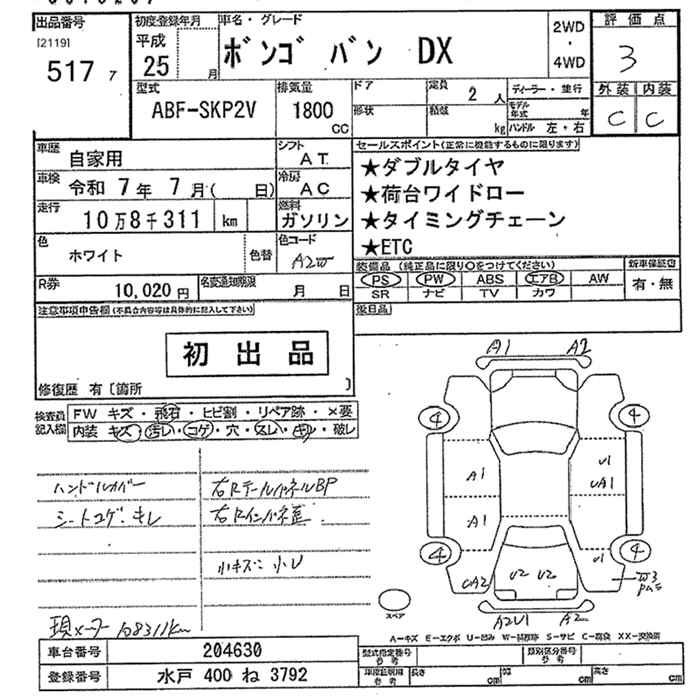 出品番号
[2119]
517 7
初度登録年月
平成
25 月
車名・グレード
ボンゴ バン DX
2WD
・
4WD
評価点
3
外装 内装
C C
型式
ABF-SKP2V
排気量
1800
CC
ドア
形状
定員
2 人
積載
kg
ディーラー・並行
モデル年式 年
ハンドル 左・右
車歴
自家用
シフト
AT
車検
令和 7年 7月( 日)
冷房
AC
走行
10万8千311 km
燃料
ガソリン
色
ホワイト
色替
色コード
A2W
R券
10,020円
名変通知期限
月 日
セールスポイント(正常に機能するものに限ります)
★ダブルタイヤ
★荷台ワイドロー
★タイミングチェーン
★ETC
装備品 (純正品に限り○をつけてください)
PS PW ABS エアB AW
SR ナビ TV カワ
新車保証書
有・無
後日品
注意事項申告欄(不具合内容等は具体的に記入して下さい)
初出品
修復歴 有〔箇所 〕
検査員記入欄
FW キズ・飛石・ヒビ割・リペア跡・×要
内装 キズ・汚レ・コゲ・穴・スレ・キレ・破レ
ハンドルカバー
シートコゲ・キレ
右Rテールパネル BP
右Rインパネ歪
小キズ 小U
現メーター 108311km
A1 A2
4 4
A1 U1
UA1
A1
4 4
UA2 U2 U2 U1
W3
スペア
A2U1 A2
A-キズ E-エクボ U-凹み W-補修跡 S-サビ C-腐食 XX-交換済
車台番号
204630
登録番号
水戸 400 ね 3792
型式指定番号
参考
類別区分番号
参考
車庫証明用
参考
長さ cm
幅 cm
高さ cm